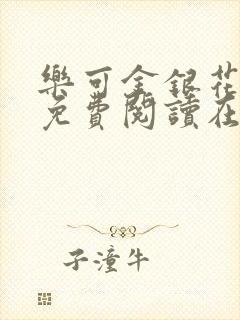 樂可金銀花
免費閱讀在
子潼牛